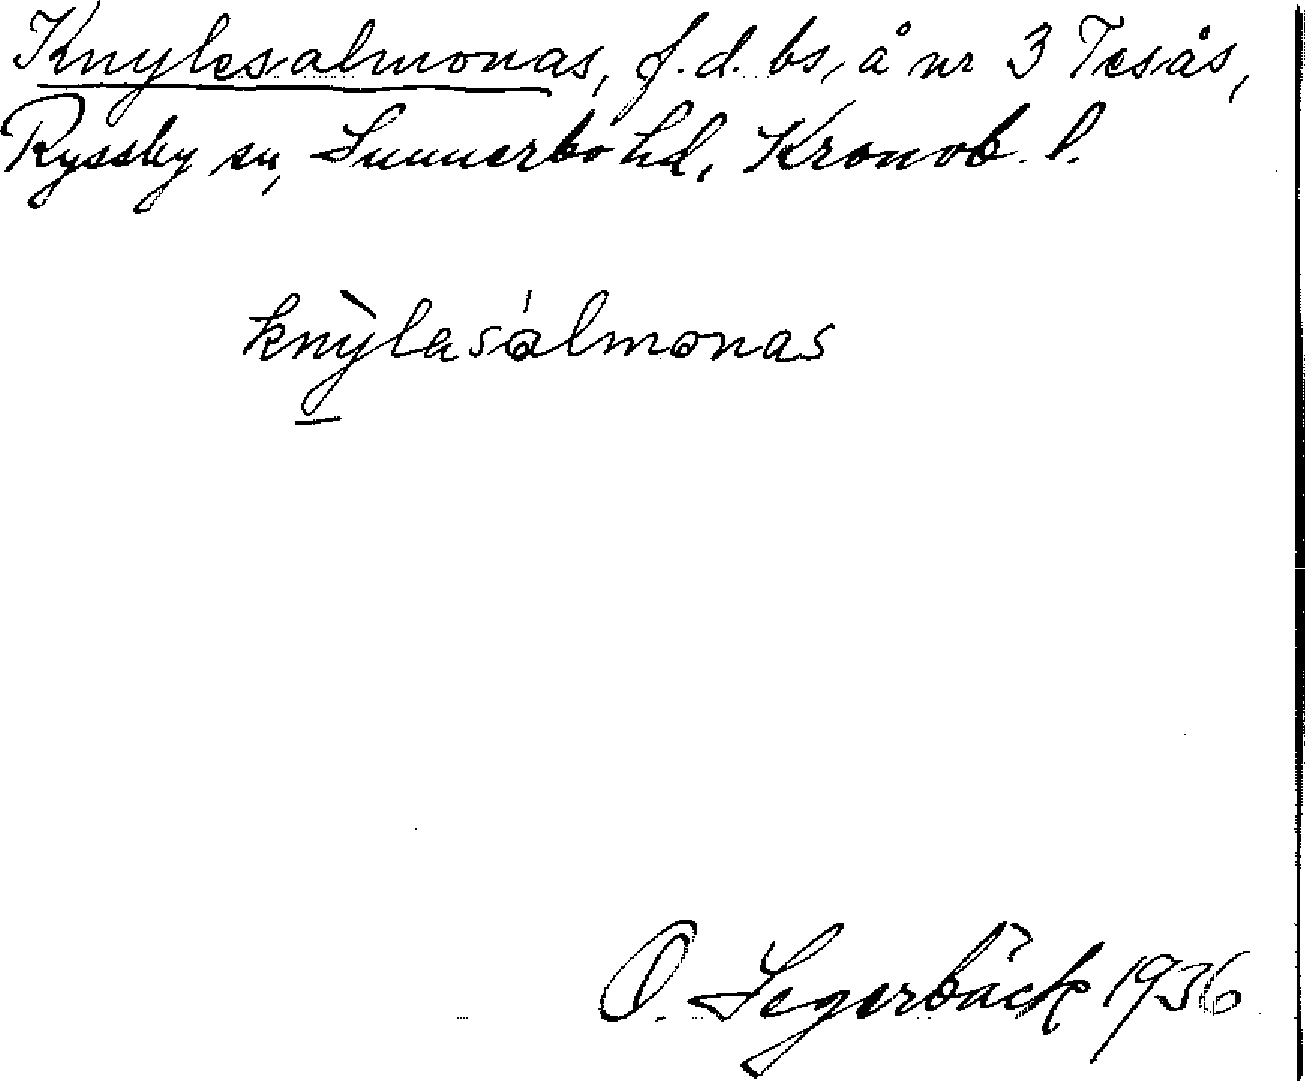 Knylesalmonas, f.d. bs, å nr 3 Tesås,
Ryssby sn, Sunnerbo hd, Kronob. l.
knỳ̠lasålmonas
O. Segerbäck 1936